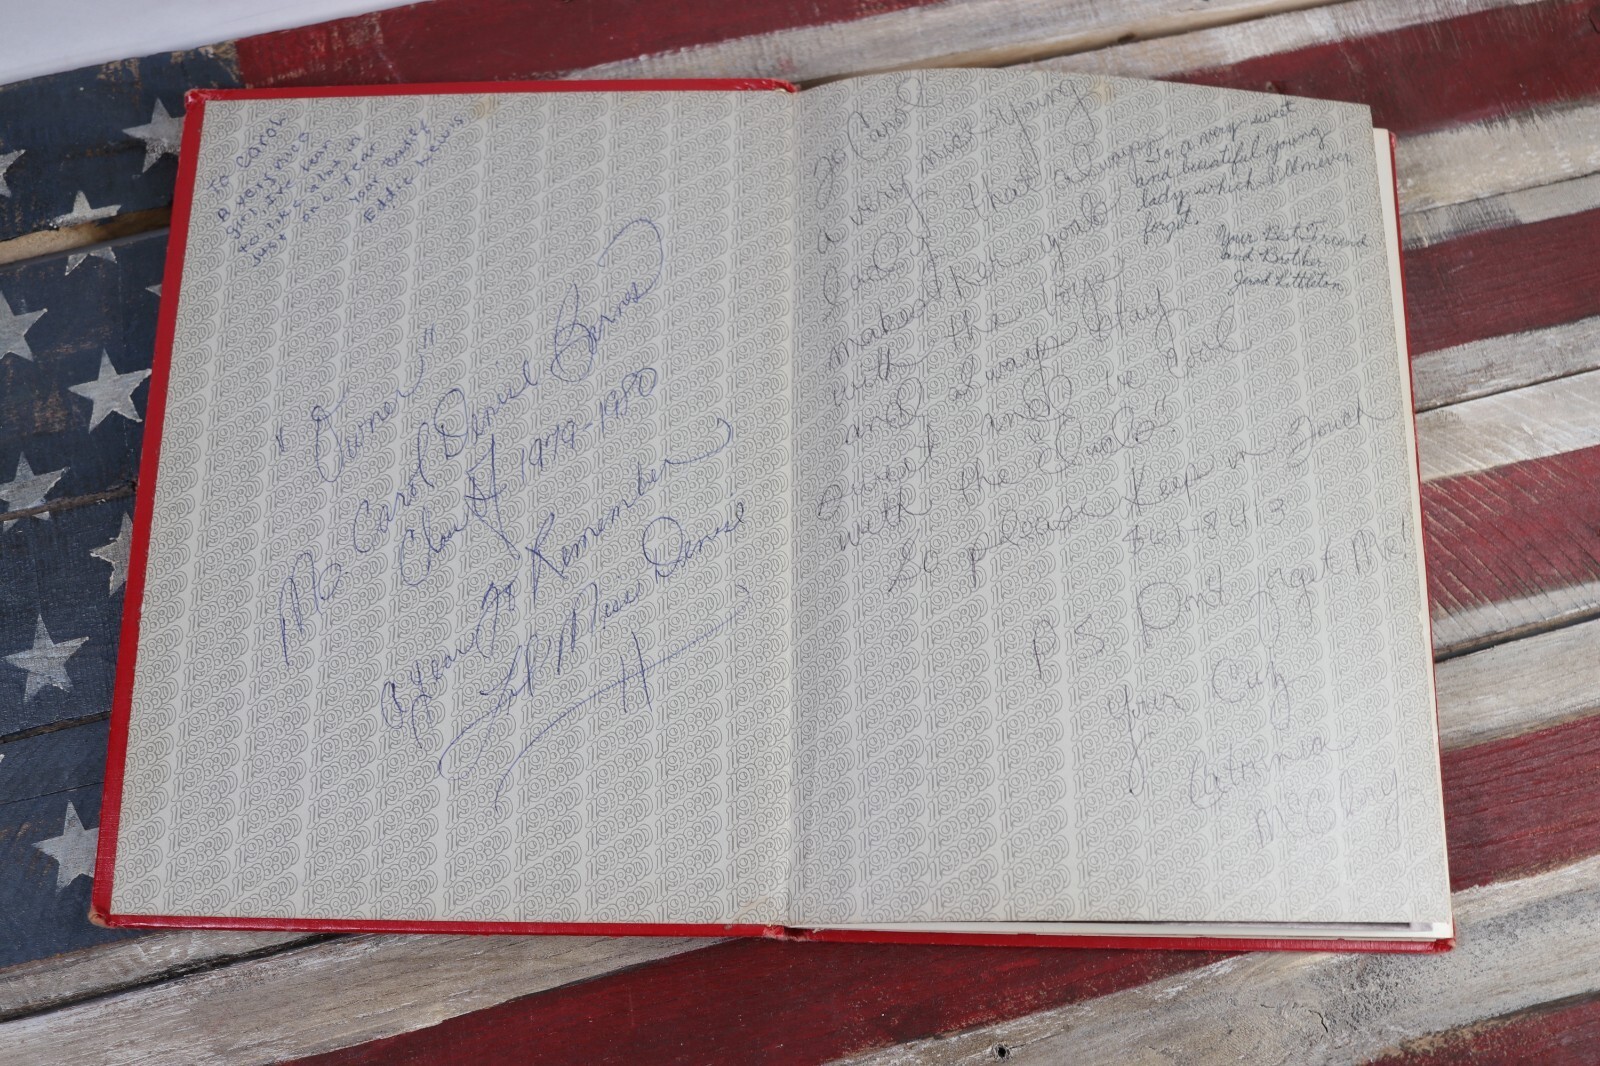 To Carol
A very nice
girl, I've been
to like alot in
just on a year
your Buddy
Eddie Lewis
"Owner"
Ms Carol Denise Barnes
Class of 1979-1980
A year to Remember
Lil Miss Denise
To Carol
a very nice Young
lady that always
makes her goals
with the boys
and always stay
sweet and be cool
with the
So please Keep in Touch
361-8413
P.S. Don't forget Me!
Your Cuz
Catrinia
McClary
To a very sweet
and beautiful young
lady which I'll never
forget.
Your Best Friend
and Brother
Jerod Littleton
1980